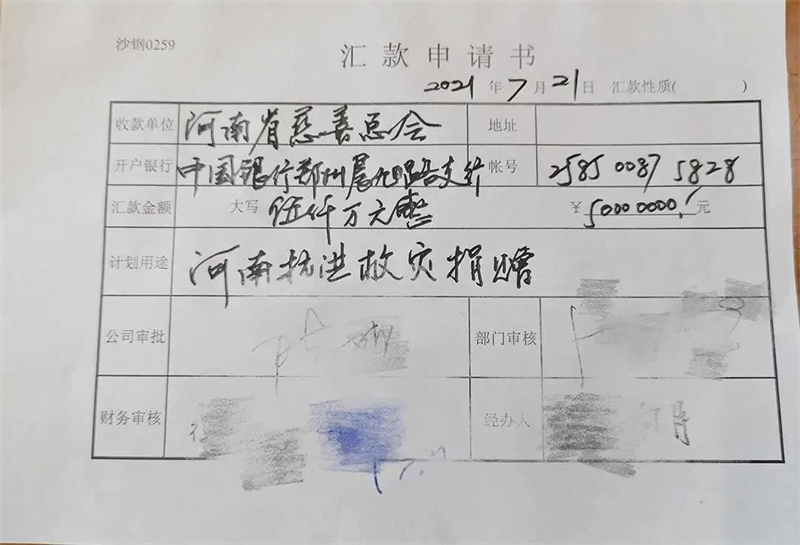 沙钢0259
汇款申请书
2021年7月21日 汇款性质( )
收款单位 河南省慈善总会 地址
开户银行 中国银行郑州 支行 帐号 2585 0087 5828
汇款金额 大写 伍仟万元整 ￥50000000.元
计划用途 河南抗洪救灾捐赠
公司审批 部门审核
财务审核 经办人